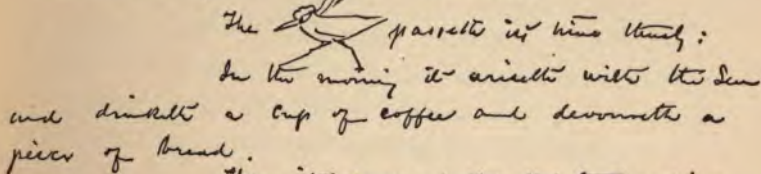 The passeth its time thusly:
In the morning it ariseth with the Sun
and drinketh a cup of coffee and devoureth a
piece of bread.